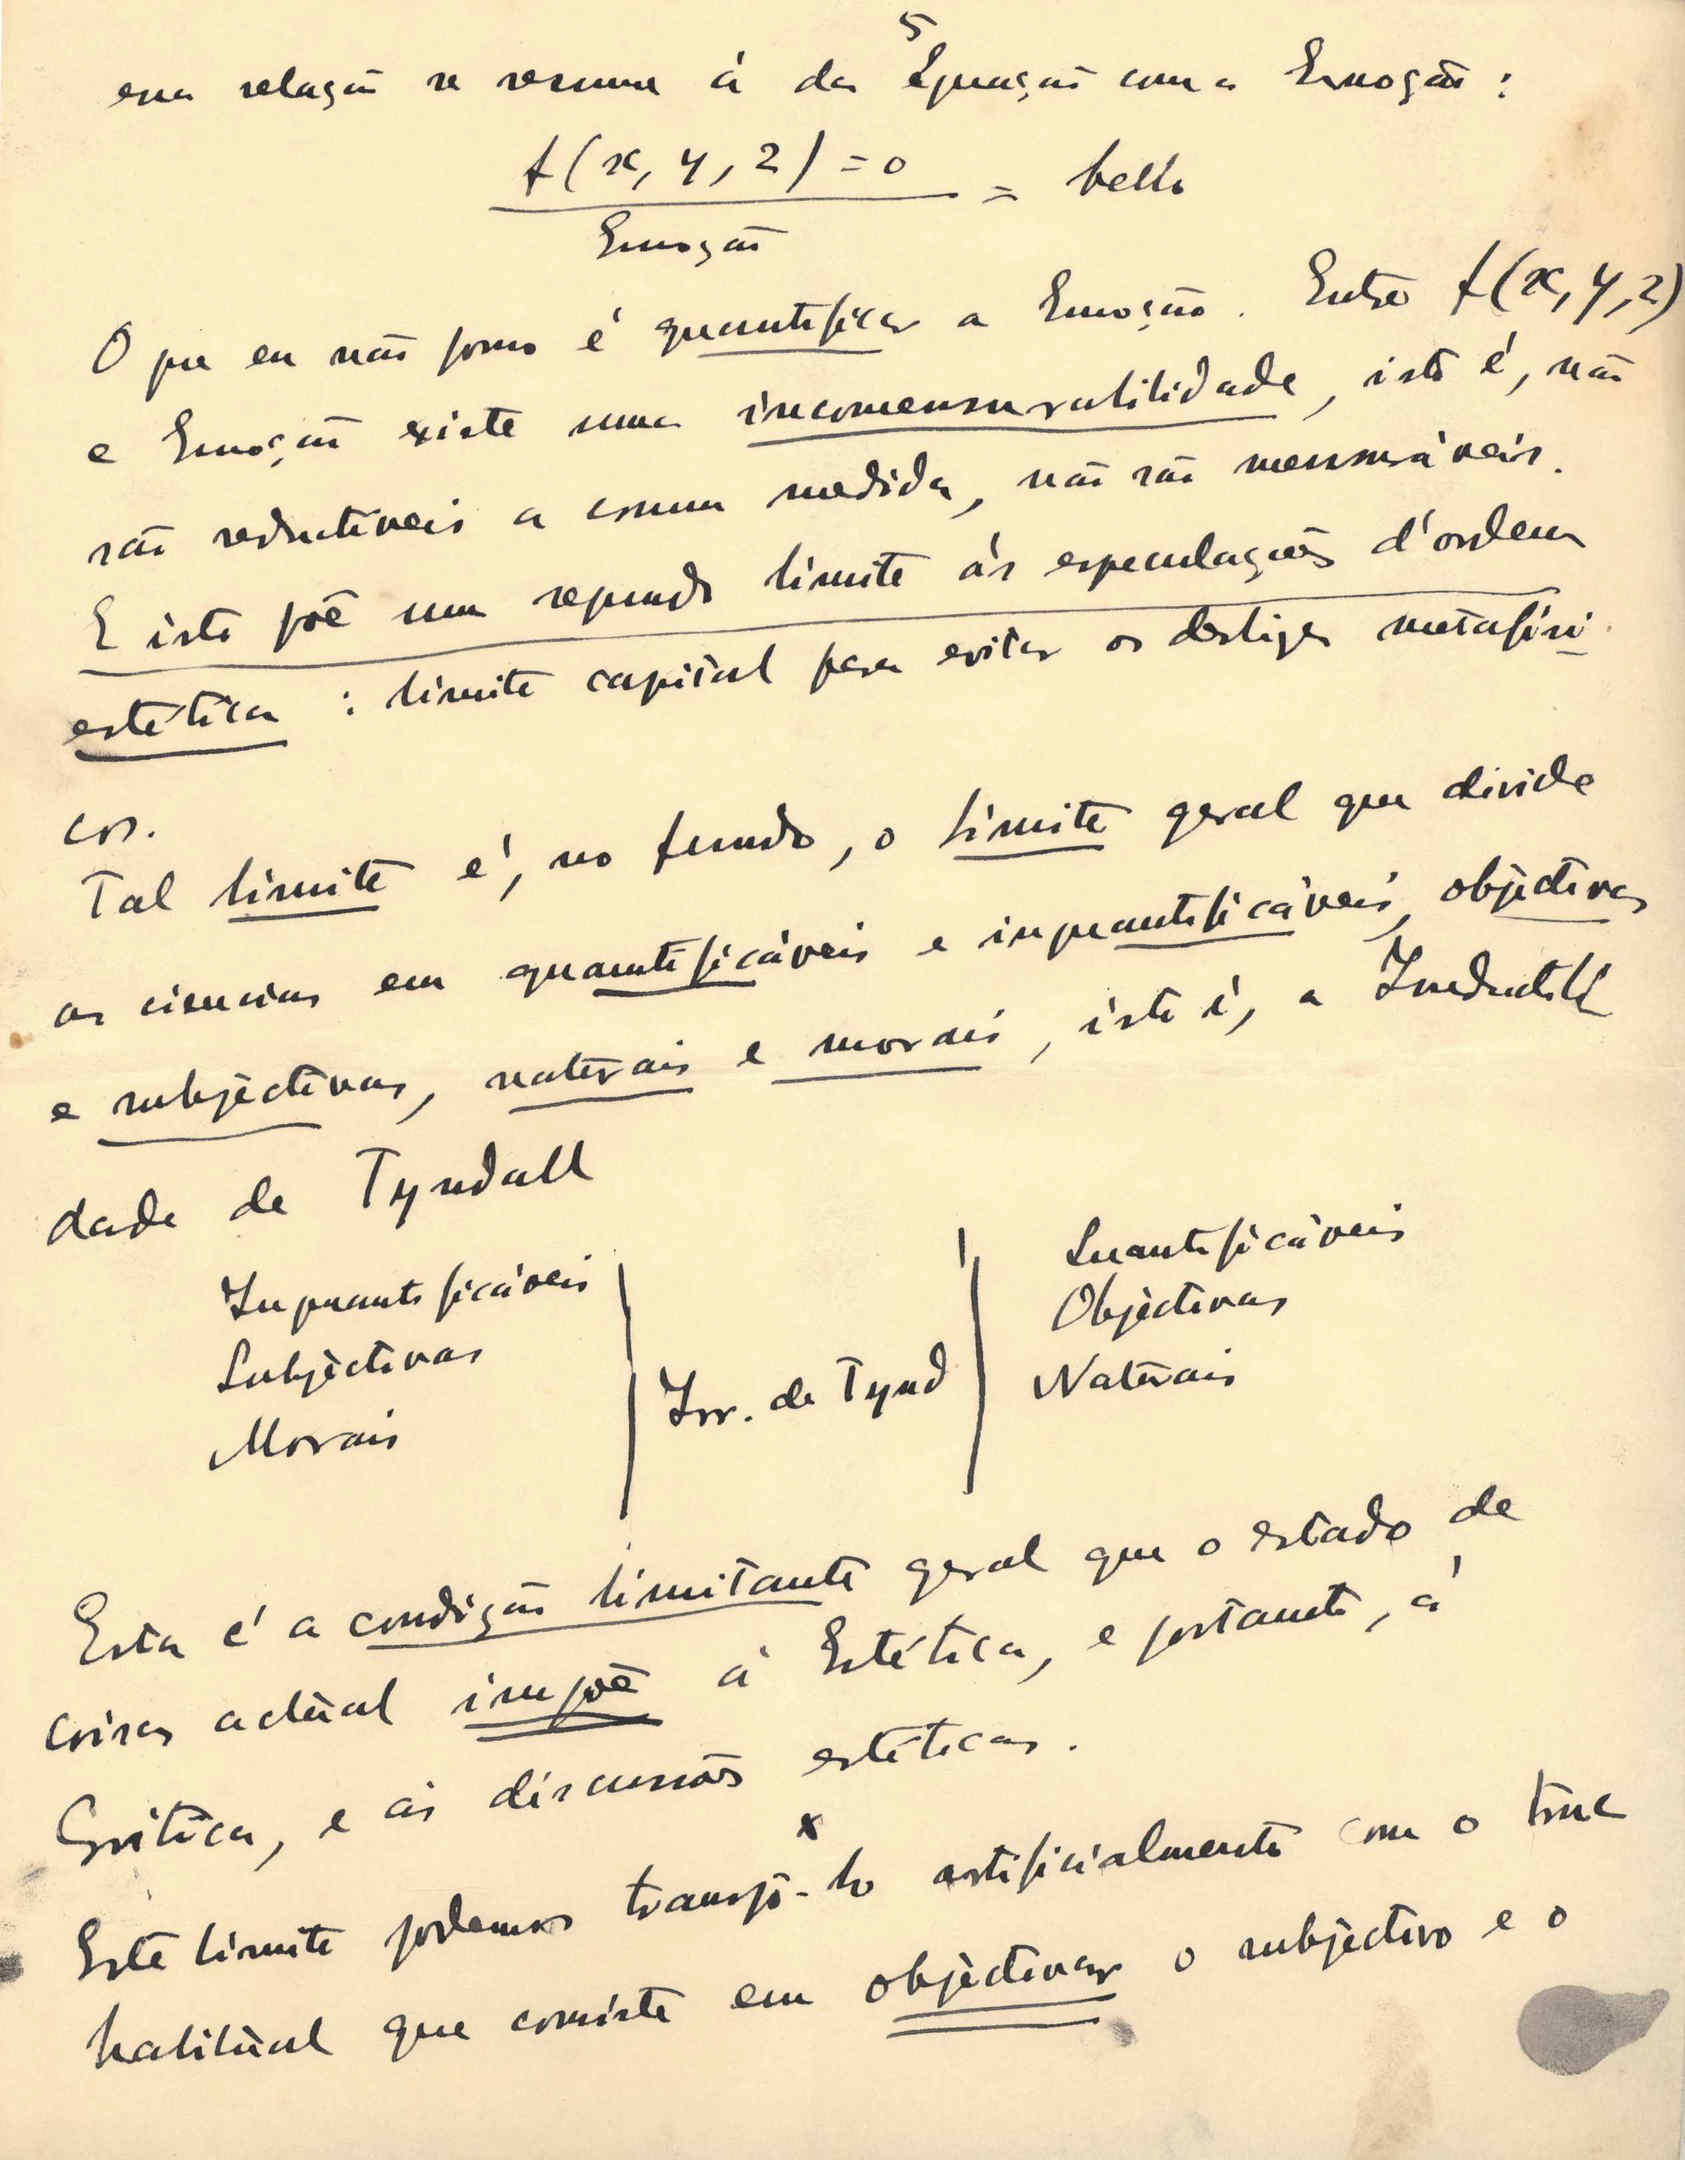 5
essa relação se resume à da Equação com a Emoção :
f(x, y, z) = 0
= bello
Emoção
O que eu não posso é quantificar a Emoção. Entre f(x, y, z)
e Emoção existe uma incomensurabilidade, isto é, não
são reductiveis a comum medida, não são mensuráveis.
E isto põe um segundo limite às especulações d'ordem
estética : limite capital para evitar os deslizes metafísi-
cos.
Tal limite é, no fundo, o limite geral que divide
as ciencias em quantificáveis e inquantificáveis, objectivas
e subjectivas, naturais e morais, isto é, a Irreductibili
dade de Tyndall
Inquantificáveis
Subjectivas
Morais
Irr. de Tynd
Quantificáveis
Objectivas
Naturais
Esta é a condição limitante geral que o estado de
coisas actual impõe à Estética, e portanto, à
Crítica, e às discussões estéticas.
x
Este limite podemos transpô-lo artificialmente com o truc
habitual que consiste em objectivar o subjectivo e o